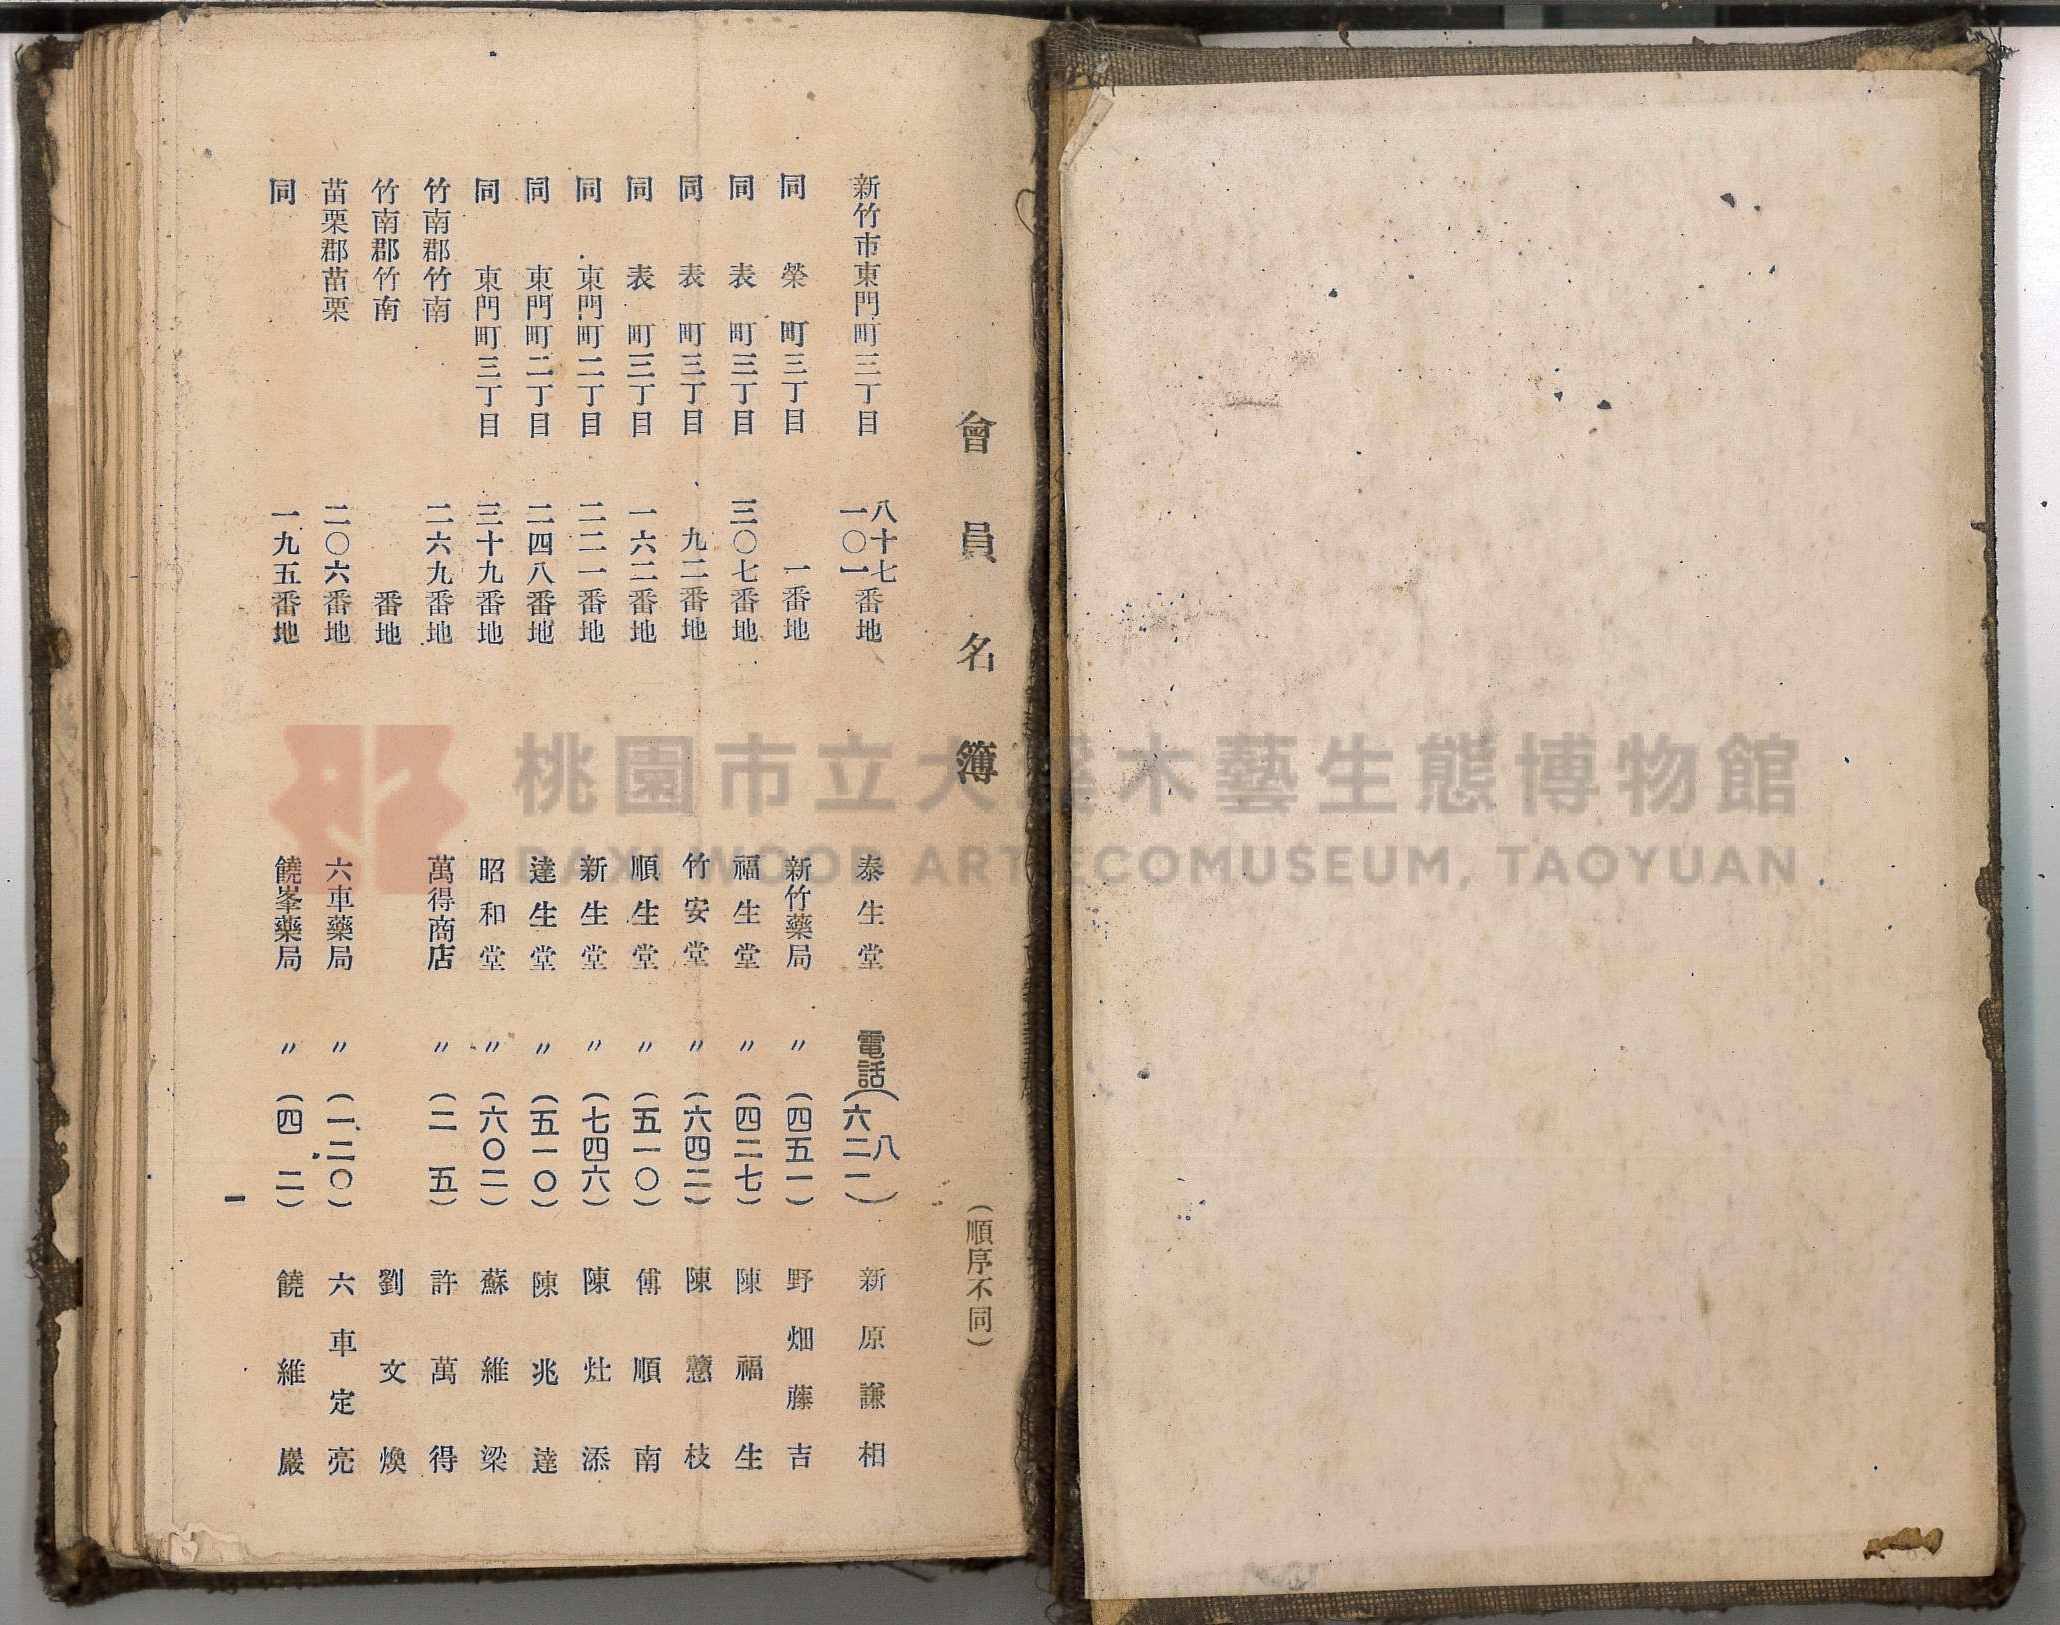 會員名簿
（順序不同）
新竹市東門町三丁目 八十七 一〇一番地 泰生堂 電話（八 六二一） 新原謙相
同 榮町三丁目 一番地 新竹藥局 〃（四五一） 野畑藤吉
同 表町三丁目 三〇七番地 福生堂 〃（四二七） 陳福生
同 表町三丁目 九二番地 竹安堂 〃（六四二） 陳枝
同 表町三丁目 一六二番地 順生堂 〃（五一〇） 傅順南
同 東門町二丁目 二二一番地 新生堂 〃（七四六） 陳灶添
同 東門町二丁目 二四八番地 達生堂 〃（五一〇） 陳兆達
同 東門町三丁目 三十九番地 昭和堂 〃（六〇二） 蘇維梁
竹南郡竹南 二六九番地 萬得商店 〃（二五） 許萬得
竹南郡竹南 番地 劉文煥
苗栗郡苗栗 二〇六番地 六車藥局 〃（一二〇） 六車定亮
同 一九五番地 饒峯藥局 〃（四二） 饒維巖
一
桃園市立大溪木藝生態博物館
DAXI WOOD ART ECOMUSEUM, TAOYUAN